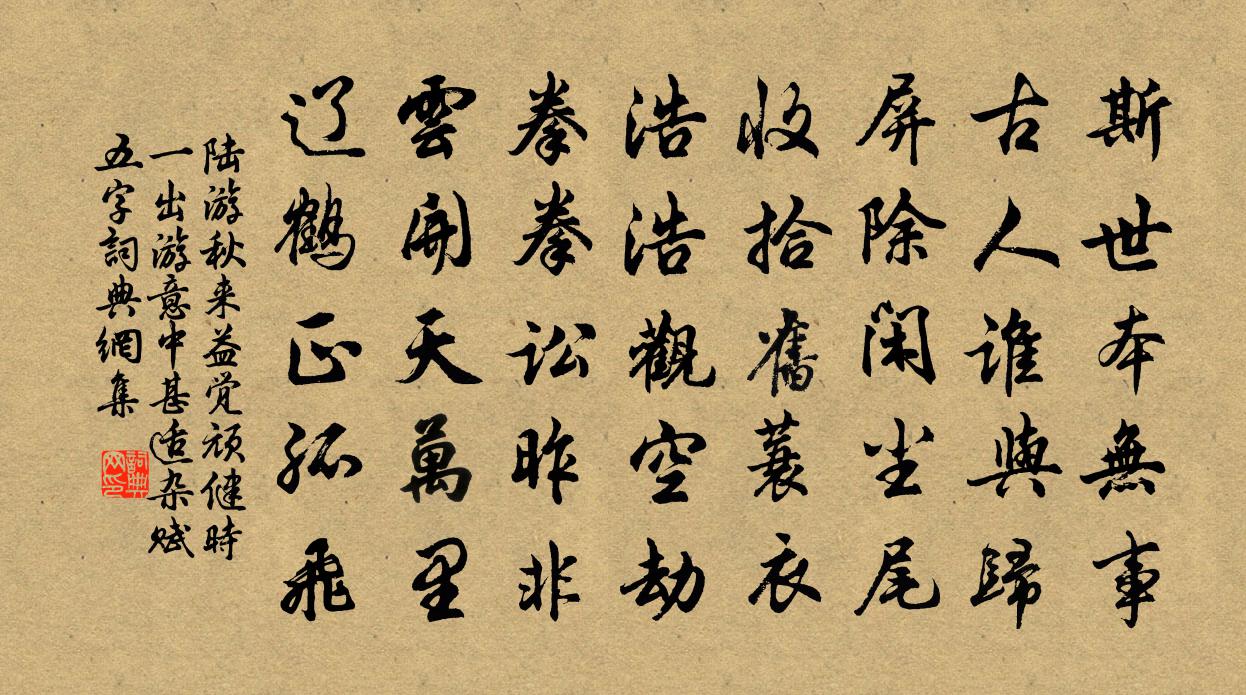 斯世本無事
古人誰與歸
屏除閑尘尾
收拾舊蓑衣
浩浩觀空劫
拳拳訟昨非
雲開天萬里
辽鶴正孤飛
陆游秋来益觉顽健時
一出游意中甚适杂赋
五字詞典網集
詞典网印